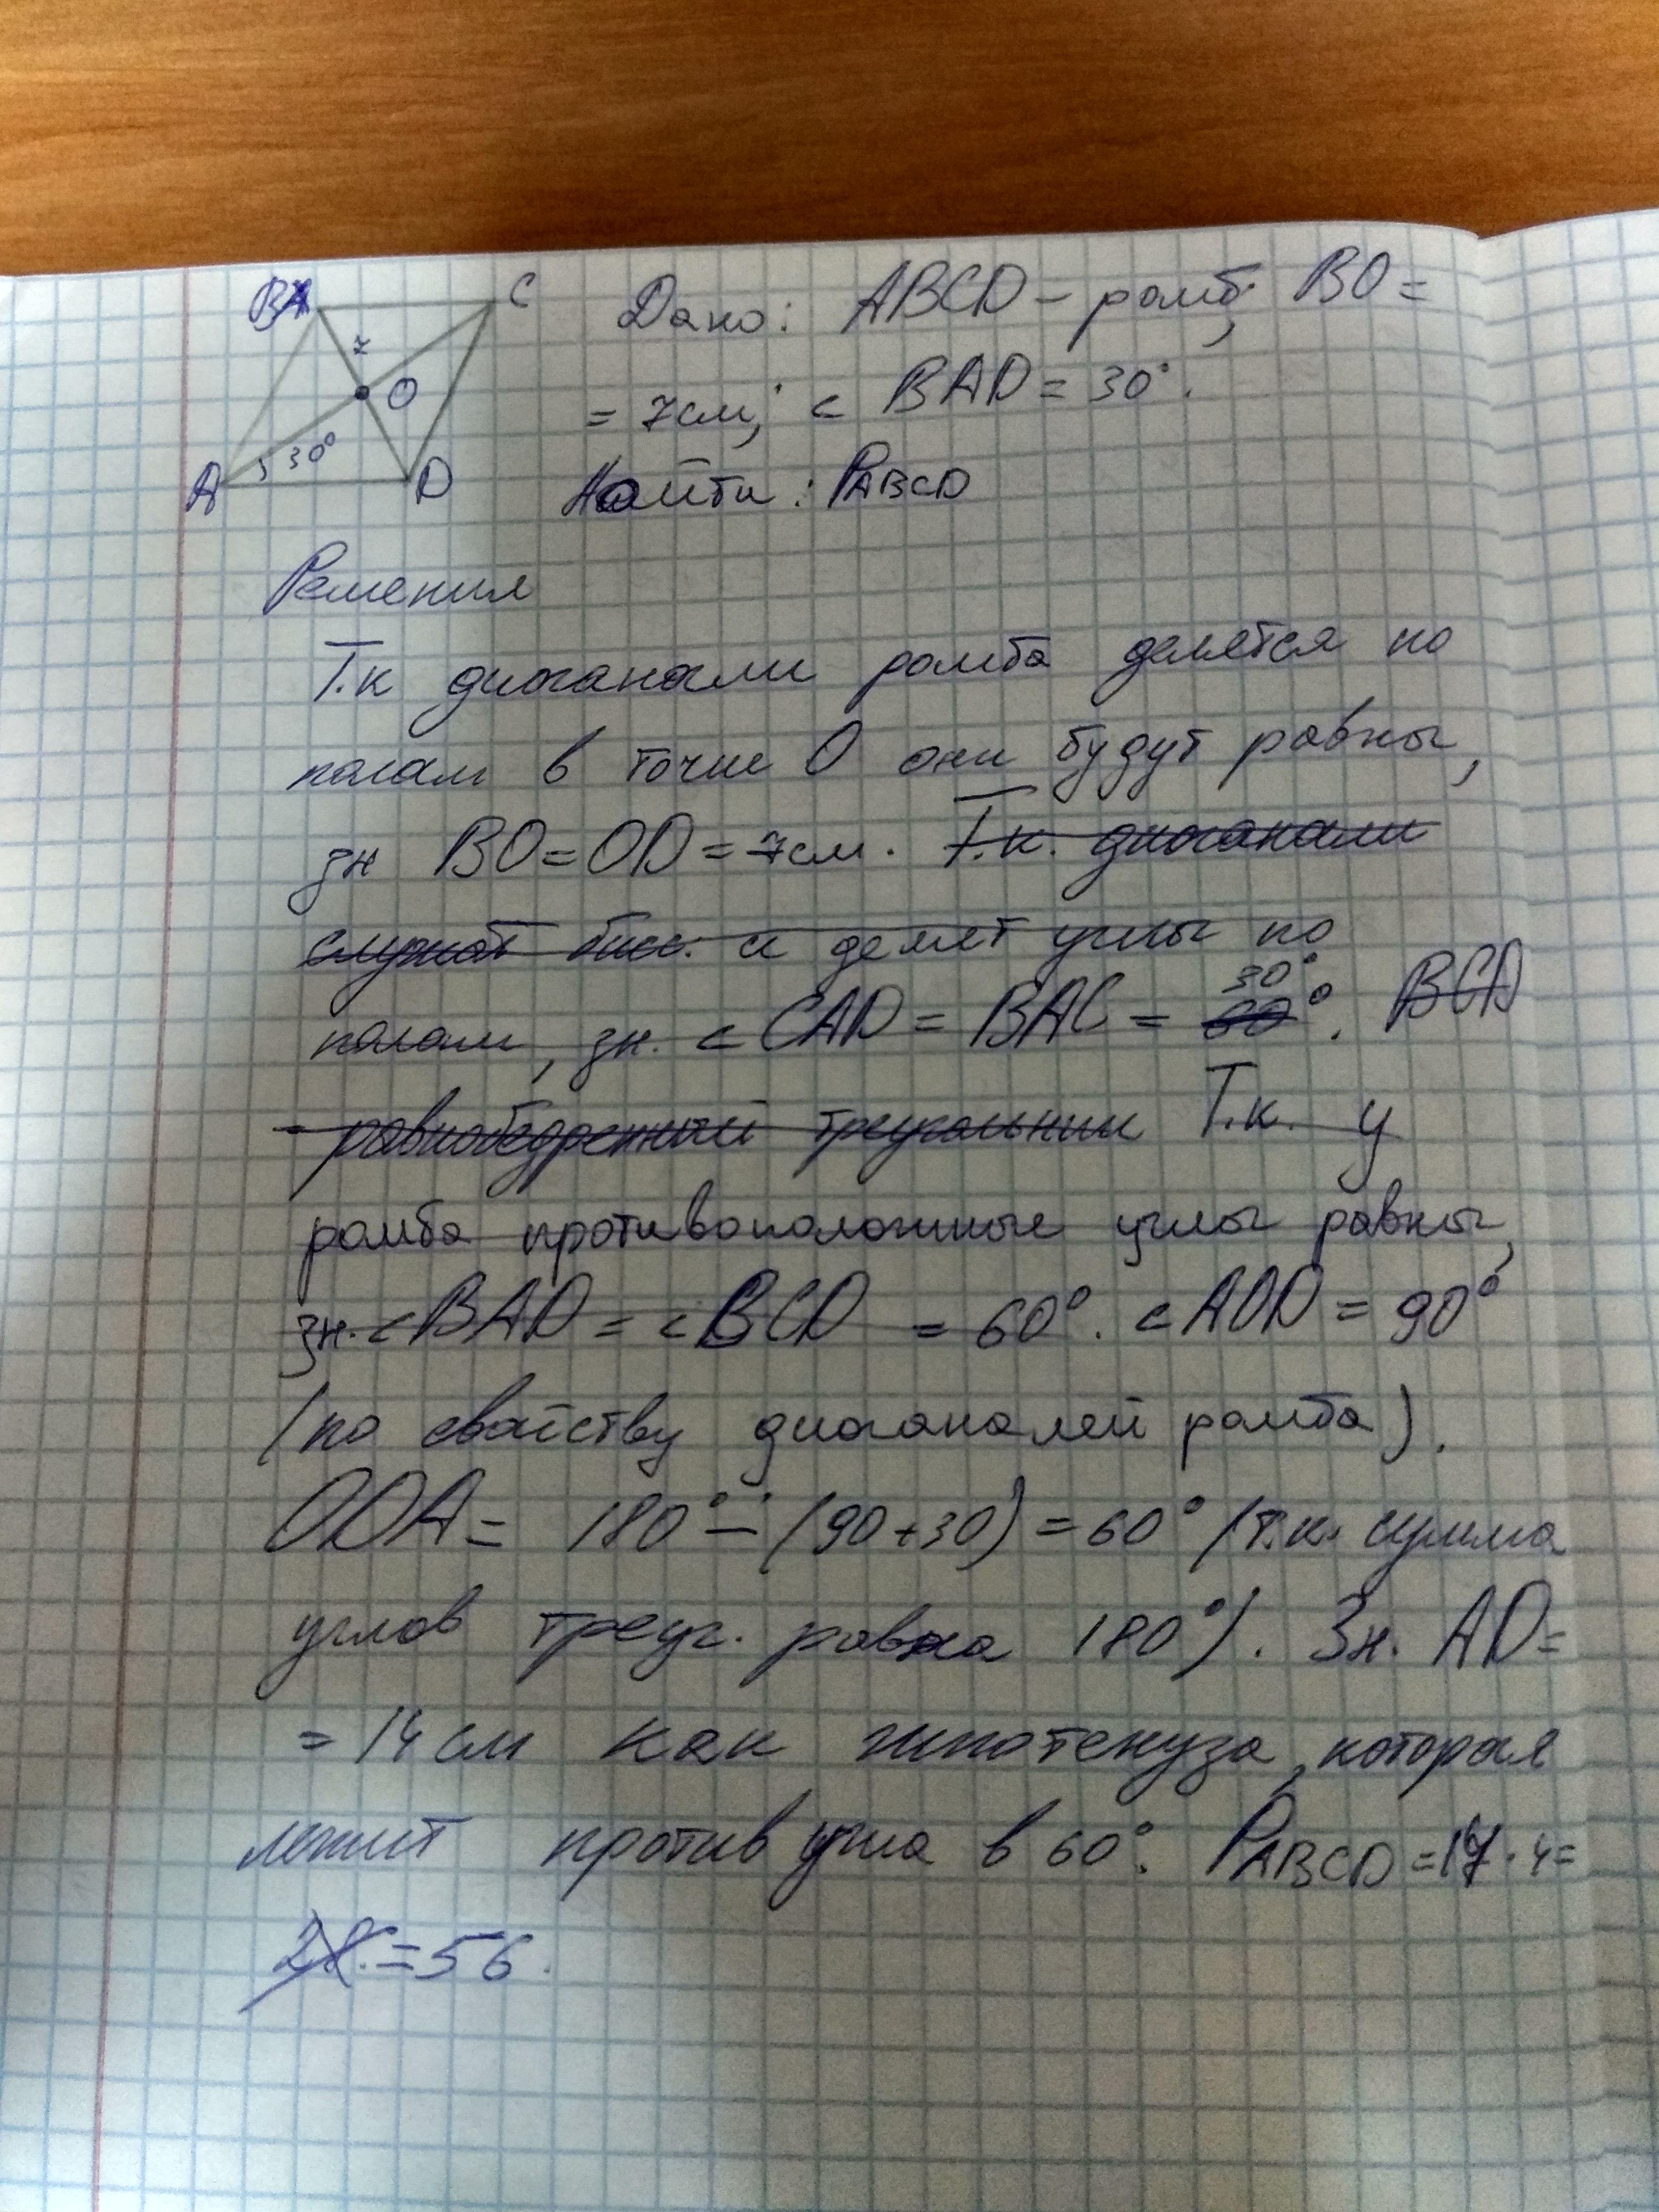 B C Дано: ABCD – ромб; BO =
7 O = 7см; < BAD = 30°.
A 30° D Найти: PABCD
Решения
Т.к диоганали ромба делятся по
полам в точке О они будут равны,
зн BO = OD = 7см. Т.к. диоганали
служат бис. и делят углы по
полам, зн. < CAD = BAC = 60° 30°. BCD
- равнобедренный треугольник Т.к. у
ромба противоположные углы равны,
зн. < BAD = < BCD = 60°. < AOD = 90°
(по свойству диоганалей ромба).
ODA = 180° – (90 + 30) = 60° (т.к. сумма
углов треуг. равна 180°). Зн. AD =
= 14 см как гипотенуза, которая
лежит против угла в 60°. PABCD = 14 · 4 =
28. = 56.